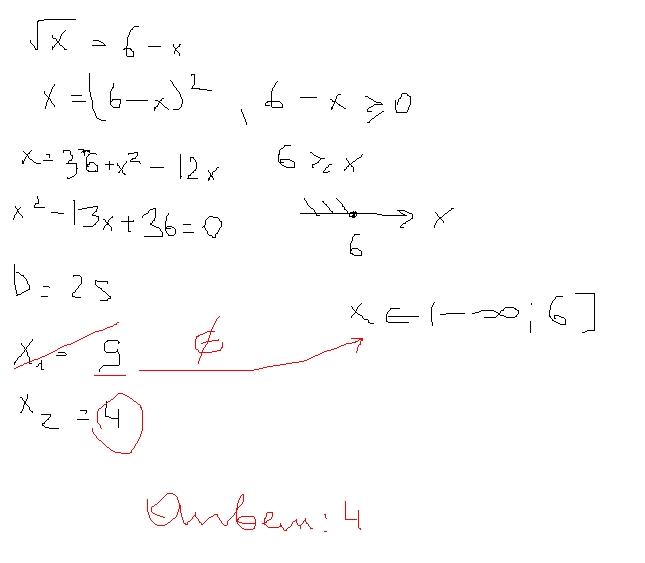 √x = 6 - x
x = (6 - x)², 6 - x ⩾ 0
x = 36 + x² - 12x
6 ⩾ x
x² - 13x + 36 = 0
x
6
D = 25
x ∈ (-∞; 6]
x₁ = 9
∉
x₂ = 4
Ответ: 4